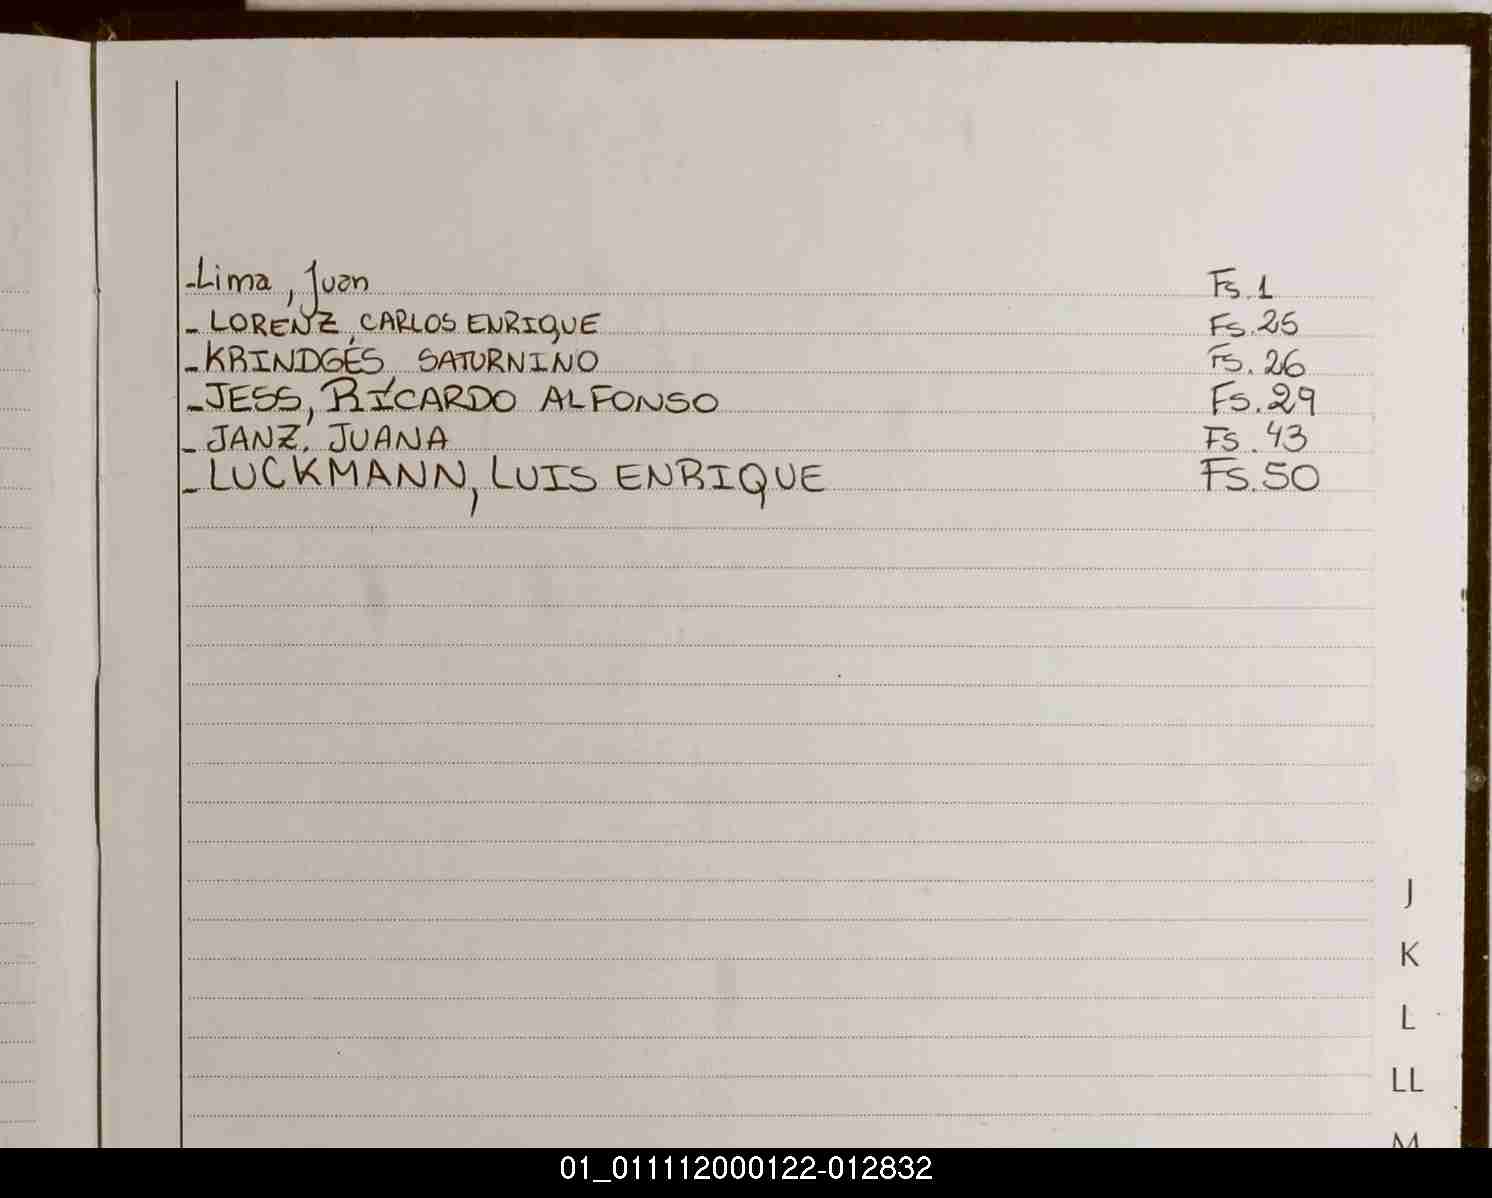 -Lima, Juan Fs. 1
- LORENZ, CARLOS ENRIQUE Fs. 25
- KRINDGES SATURNINO Fs. 26
- JESS, RICARDO ALFONSO Fs. 29
- JANZ, JUANA Fs. 43
- LUCKMANN, LUIS ENRIQUE Fs. 50
J
K
L
LL
M
01_011112000122-012832